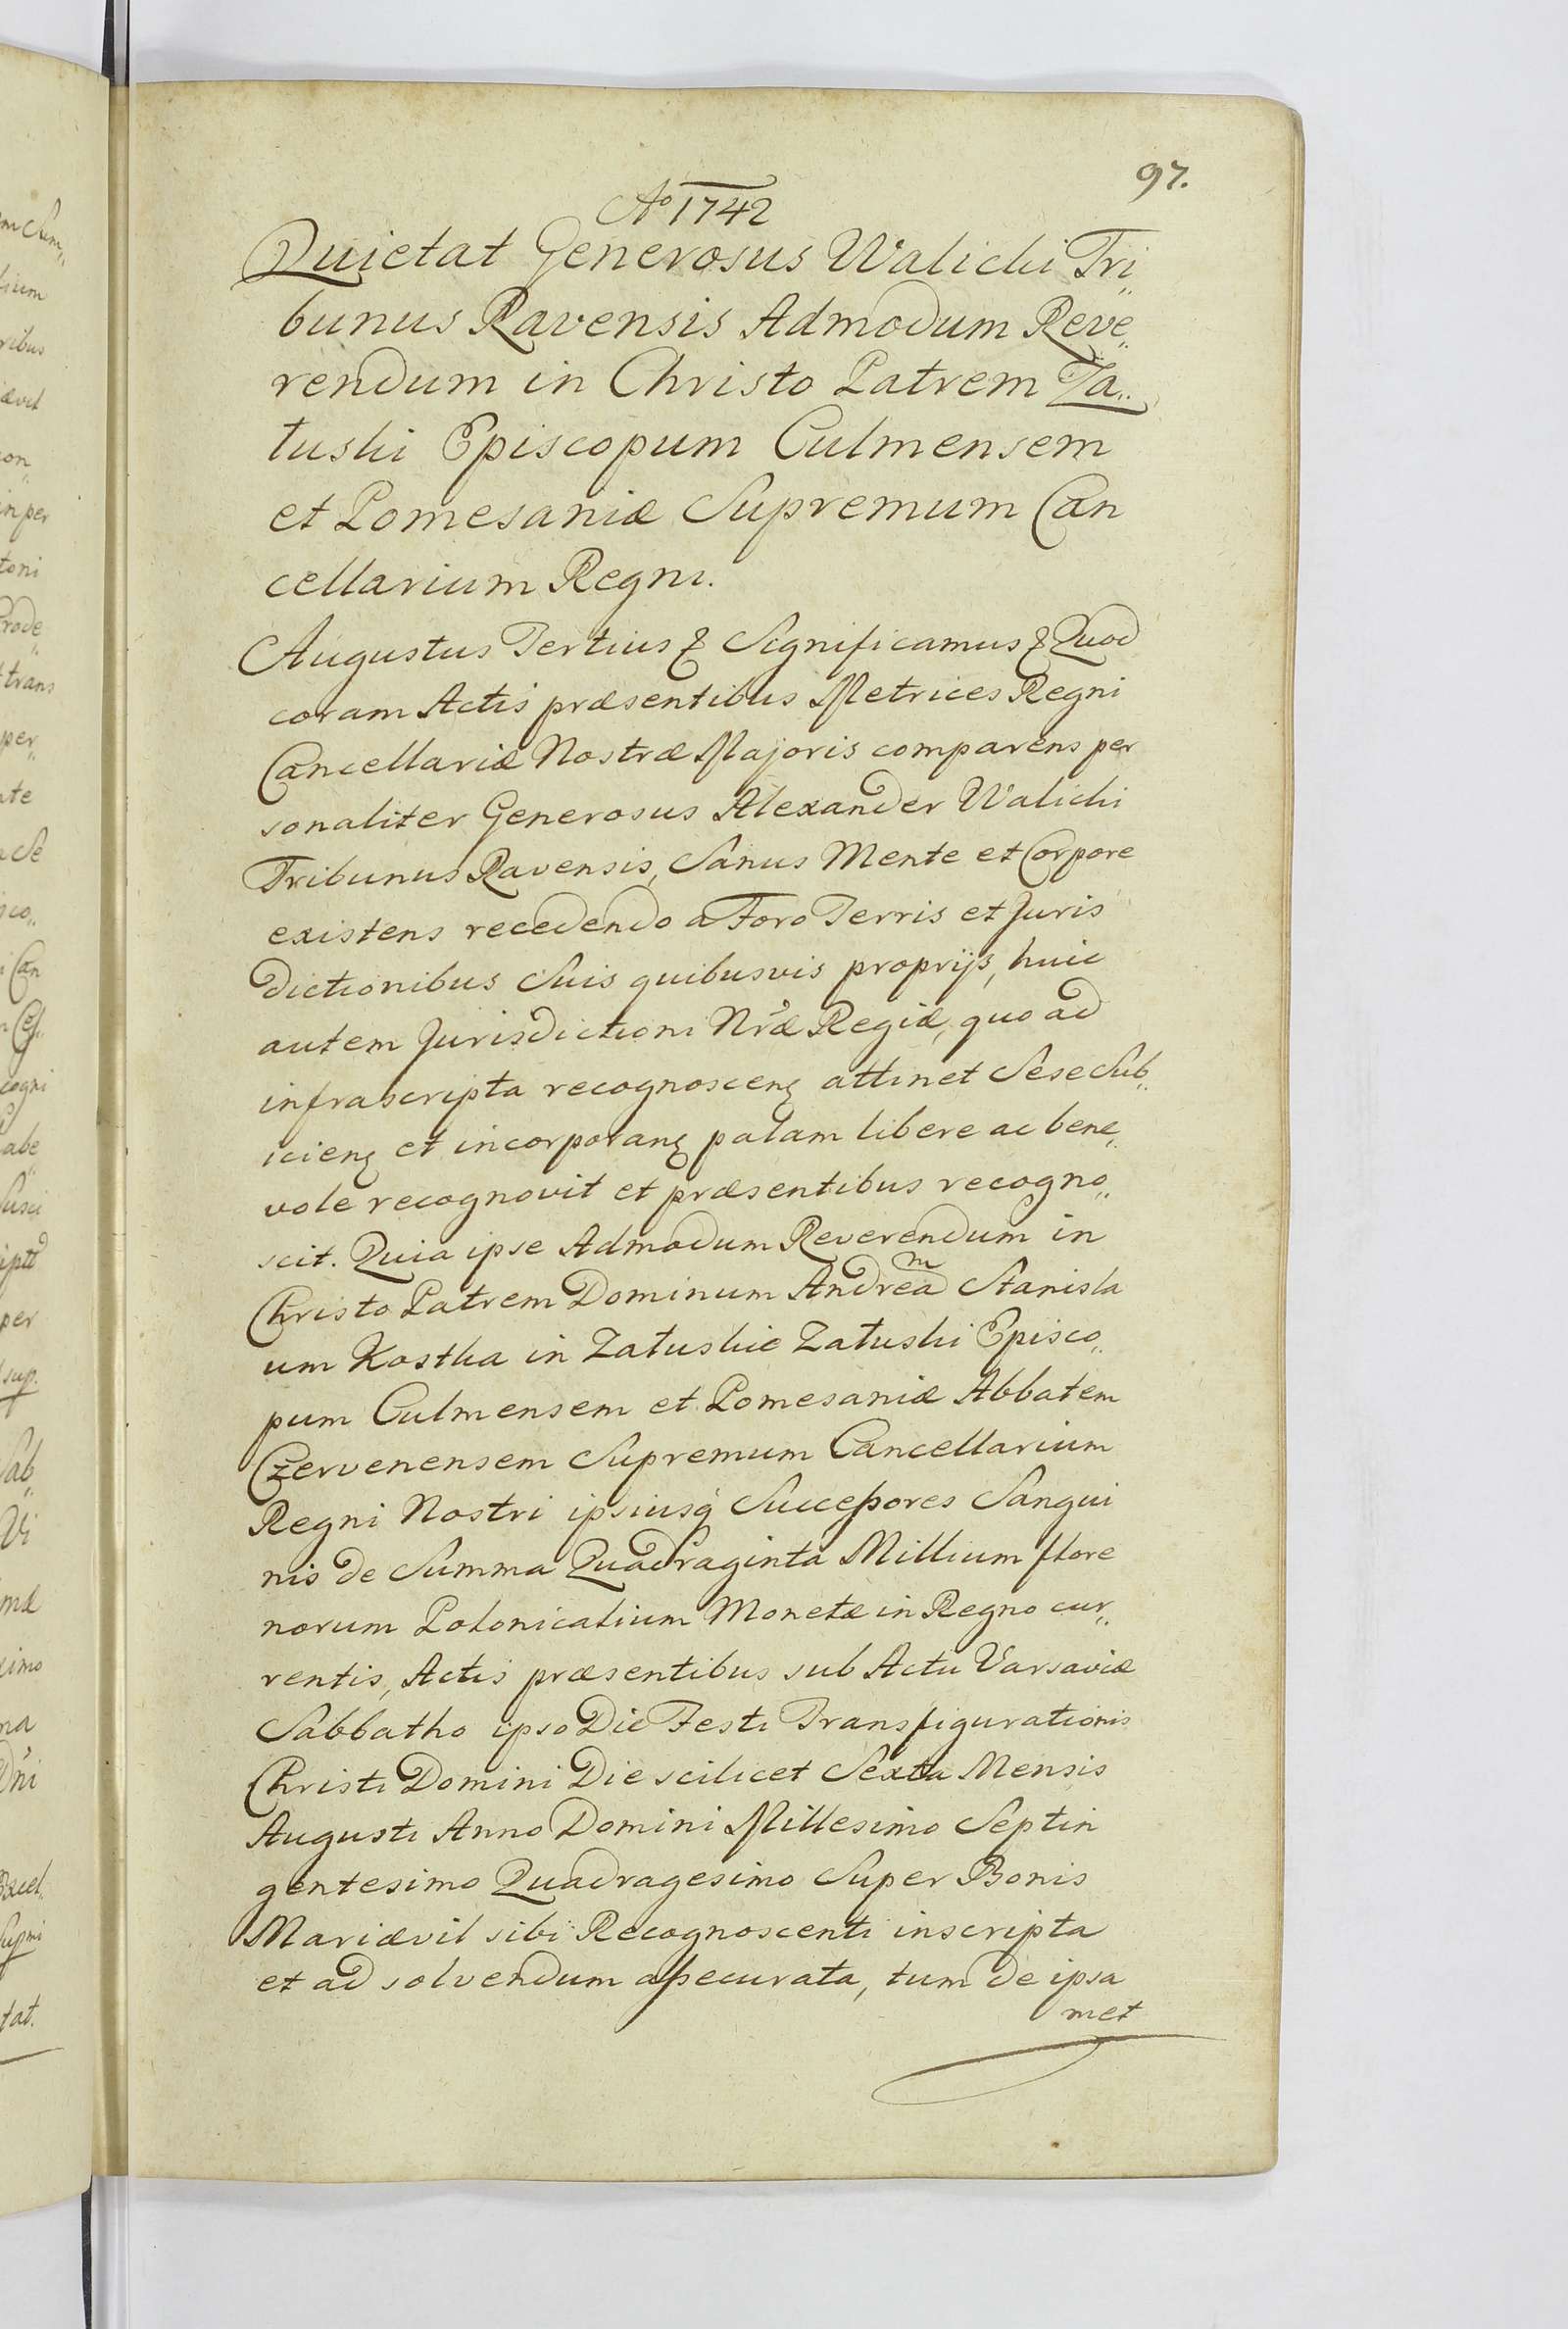 97.
Aº 1742
Quietat Generosus Walicki Tri„
bunus Ravensis Admodum Reve„
rendum in Christo Patrem Za„
łuski Episcopum Culmensem
et Pomesaniæ Supremum Can
cellarium Regni.
Augustus Tertius & Significamus & Quod
coram Actis præsentibus Metrices Regni
Cancellariæ Nostræ Majoris comparens per
sonaliter Generosus Alexander Walicki
Tribunus Ravensis, Sanus Mente et Corpore
existens recedendo a Foro Terris et Juris
dictionibus Suis quibusvis proprijs, huic
autem Jurisdictioni Nræ Regiæ, quo ad
infrascripta recognoscenꝫ attinet Sese Sub„
icienꝫ et incorporanꝫ palam libere ac bene„
vole recognovit et præsentibus recogno„
scit. Quia ipse Admodum Reverendum in
Christo Patrem Dominum Andream Stanisla
um Kostka in Załuskie Załuski Episco„
pum Culmensem et Pomesaniæ Abbatem
Czervenensem Supremum Cancellarium
Regni Nostri ipsiusq́ Successores Sangui
nis de Summa Quadraginta Millium flore
norum Polonicalium Monetæ in Regno cur„
rentis, Actis præsentibus sub Actu Varsaviæ
Sabbatho ipso Die Festi Transfigurationis
Christi Domini Die scilicet Sexta Mensis
Augusti Anno Domini Millesimo Septin
gentesimo Quadragesimo Super Bonis
Mariævil sibi Recognoscenti inscripta
et ad solvendum assecurata, tum de ipsa
met